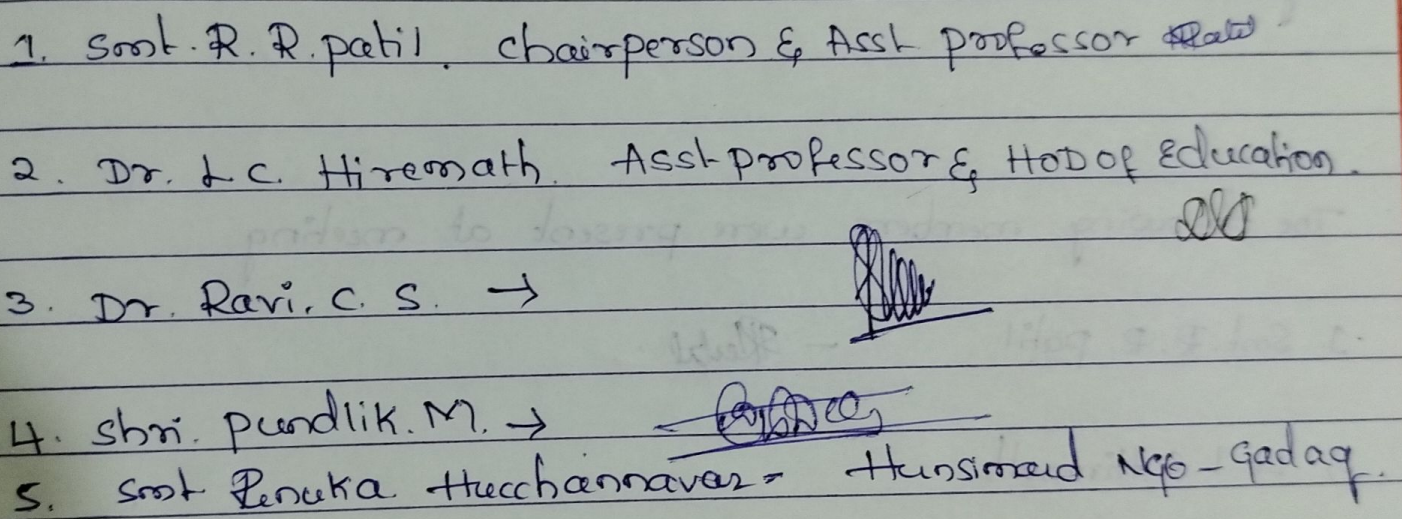 1. Smt. R. R. patil. Chairperson & Asst professor
2. Dr. L C. Hiremath. Asst professor & HOD of Education.
3. Dr. Ravi. C. S. →
4. Shri. Pundlik. M. →
5. Smt Renuka Hucchannavar - Hunsimard NGO - Gadag.